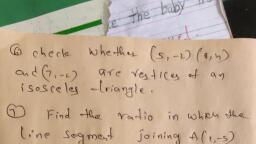 the baby
⑥ check whether (5,-2) (6,4)
and (7,-2) are vestices of an
isosceles triangle.
⑦ Find the ratio in which the
line segment joining A(1,-5)